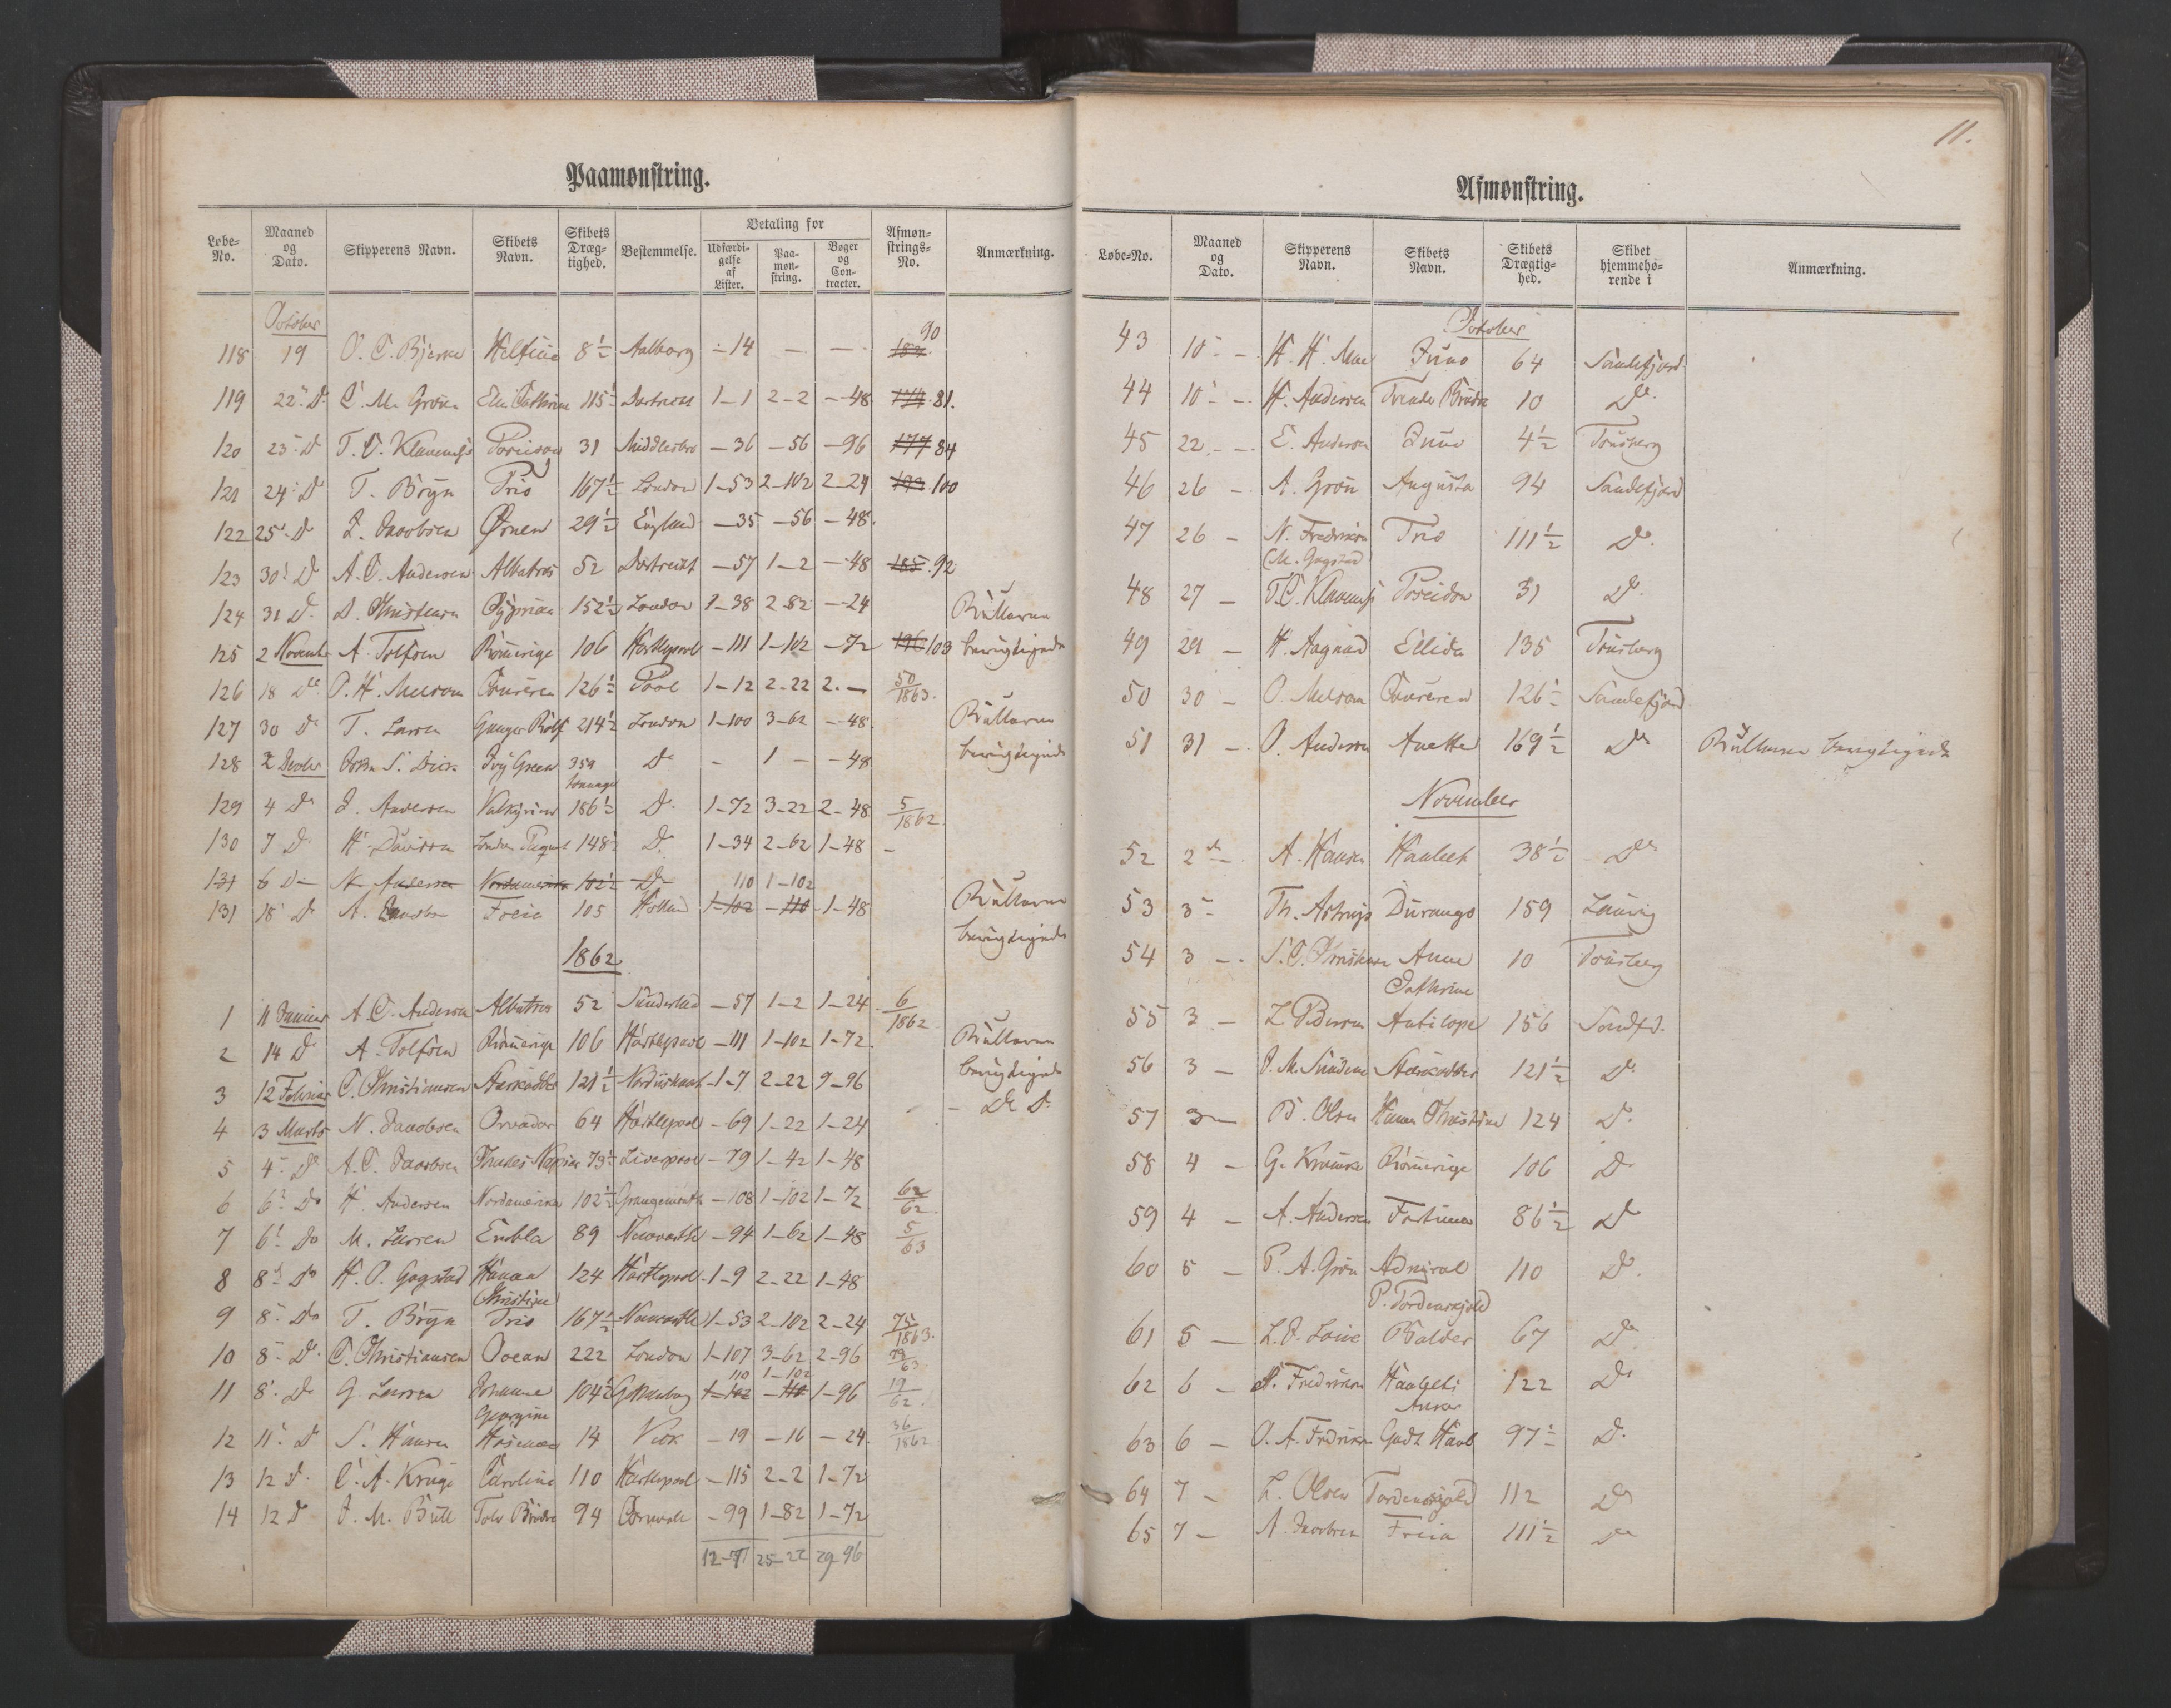 Paamønstring.
Løbe-No. | Maaned og Dato. | Skipperens Navn. | Skibets Navn. | Skibets Dræg-tighed. | Bestemmelse. | Betaling for | Udfærdi-gelse af Lister. | Paa-møn-string. | Bøger og Con-tracter. | Afmøn-strings-No. | Anmærkning.
October
118 19 O. C. Bjerke 8½ Aalborg - 14 — — 90
119 22 D. C. M. Grøn 115½ Dortrecht 1-1 2-2 -48 81.
120 23 D T. C. Klavenes Poseidon 31 Middlesbro -36 -56 -96 177 84
121 24 D T. Bryn Trio 167½ London 1-53 2-102 2-24 100
122 25 D J. Jacobsen Ørnen 29½ England -35 -56 -48.
123 30 D A. C. Andersen Albatros 52 Dortrecht -57 1-2 -48 185. 92
124 31 D. D. Christensen 152½ London 1-38 2-82 -24 Rullerne
125 2 Novemb A. Tolfsen Romerige 106 Hartlepool -111 1-102 -72 196 103 berigtigede
126 18 De P. H. Melsom 126½ Pool 1-12 2-22 2. — 50/1863.
127 30 D T. Larsen Ganger Rolf 214½ London 1-100 3-62 -48. Rullerne
128 2 Decbr John S. Ivy Green 359 tonnage D - 1 - -48 berigtigede
129 4 D J. Andersen Valkyrien 186½ D. 1-72 3-22 2-48 5/1862.
130 7 D H. Davidsen London Paquet 148½ D. 1-34 2-62 1-48 -
131 6 D N. Andersen Nordamerika 102½ D 110 1-102
131 18 D A. Jacobsen Freia 105 Holland 1-102 -110 1-48 Rullerne
berigtigede
1862
1 11 Januar A. C. Andersen Albatros 52 Sunderland -57 1-2 1-24 6/1862
2 14 D. A. Tolfsen Romerige 106 Hartlepool -111 1-102 1-72. Rullerne
3 12 Februar C. Christiansen Stærkodder 121½ -1-7 2-22 9-96 berigtigede
4 3 Marts N. Jacobsen Orvador 64 Hartlepool -69 1-22 1-24 - De D.
5 4 D A. C. Jacobsen Charles Napier 73½ Liverpool -79 1-42 1-48
6 6 Do H. Andersen Nordamerika 102½ Grangemouth -108 1-102 1-72 62/62
7 6 Do M. Larsen Embla 89 Newcastle -94 1-62 1-48 5/63
8 8 Do H. O. Gogstad Hanna Christine 124 Hartlepool -1-9 2-22 1-48
9 8 Do T. Bryn Trio 167½ Newcastle 1-53 2-102 2-24 75/1863.
10 8 D. C. Christiansen Ocean 222 London 1-107 3-62 2-96 73/63
11 8 D G. Larsen Johanne Georgine 104½ Gothenborg 1-102 110 -110 1-102 1-96 19/62.
12 11 D S. Hansen 14 -19 -16 -24. 36/1862
13 12 D. C. A. Kruge Caroline 110 Hartlepool -115 2-2 1-72
14 12 D J. M. Bull Tolv Brødre 94 Cornwall -99 1-82 1-72
12-71 25-22 29-96
11.
Afmønstring.
Løbe-No. | Maaned og Dato. | Skipperens Navn. | Skibets Navn. | Skibets Drægtig-hed. | Skibet hjemmehø-rende i | Anmærkning.
October
43 10 — H. H. Moe Juno 64 Sandefjord.
44 10 — H. Andersen Trende Brødre 10 De.
45 22 — E. Andersen Juno 4½ Tønsberg
46 26 — A. Grøn Augusta 94 Sandefjord
47 26 — N. Fredriksen (M. Gogstad) Trio 111½ Do.
48 27 — T. C. Klavenes Poseidon 31 D.
49 29 — H. Aagaard Ellida 135 Tønsberg
50 30 — O. Melsom 126½ Sandefjord
51 31 — O. Andersen Anette 169½ De Rullerne berigtigede
November
52 2 — A. Hansen Haabet 38½ De
53 3 — Th. Durango 159 Laurvig
54 3 — S. C. Christensen Anne Cathrine 10 Tønsberg
55 3 — L. Pedersen Antilope 156 Sandfd.
56 3 — J. M. Stærkodder 121½ D.
57 3 — B. Olsen Hanna Christine 124 D.
58 4 — G. Romerige 106 D
59 4 — A. Andersen Fortuna 86½ D
60 5 — P. A. Grøn Admiral P. Tordenskjold 110 D.
61 5 — Balder 67 D
62 6 — Fredriksen Haabets Anker 122 D
63 6 — O. A. Fredriksen Godt Haab 97½ D.
64 7 — L. Olsen Tordenskjold 112 D
65 7 — A. Jacobsen Freia 111½ De